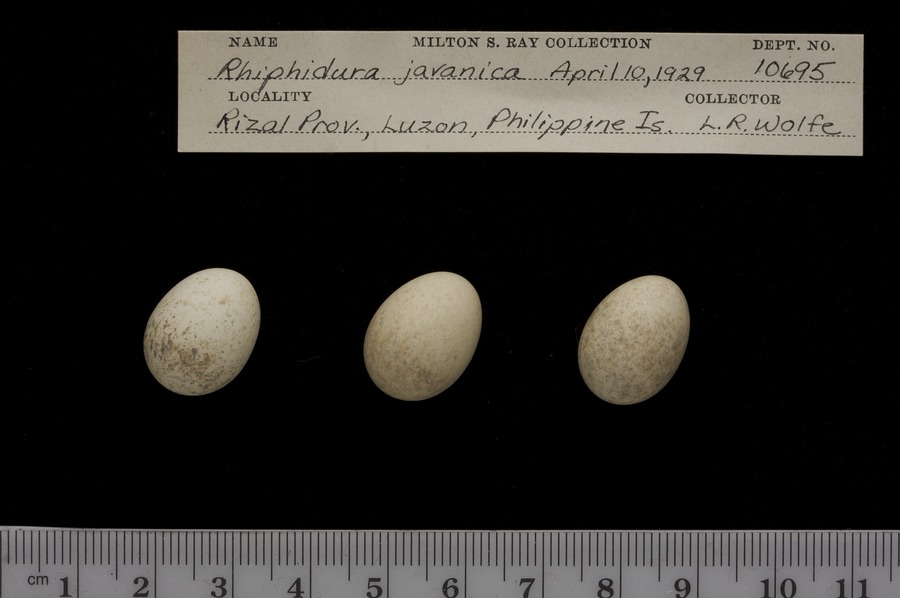 NAME MILTON S. RAY COLLECTION DEPT. NO.
Rhiphidura javanica April 10, 1929 10695
LOCALITY COLLECTOR
Rizal Prov., Luzon, Philippine Is. L.R. Wolfe
cm 1 2 3 4 5 6 7 8 9 10 11